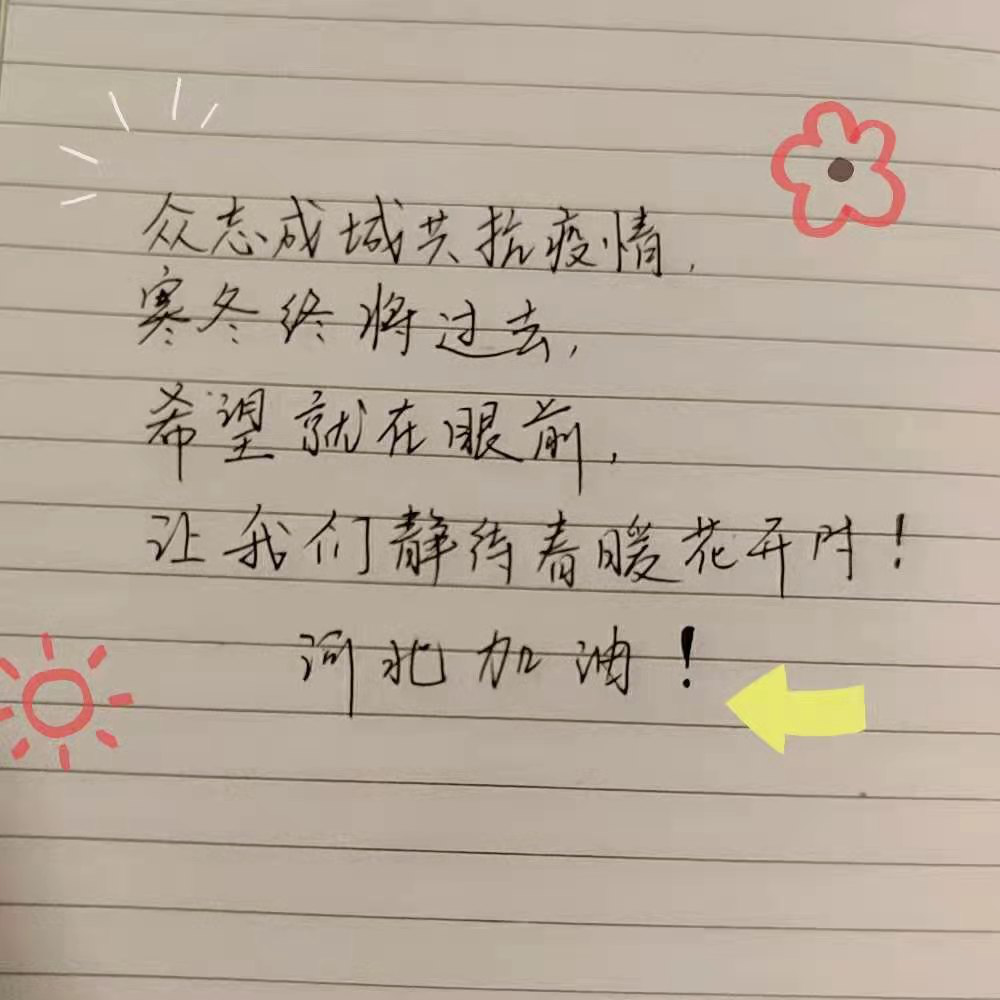 众志成城共抗疫情，
寒冬终将过去，
希望就在眼前，
让我们静待春暖花开时！
河北加油！